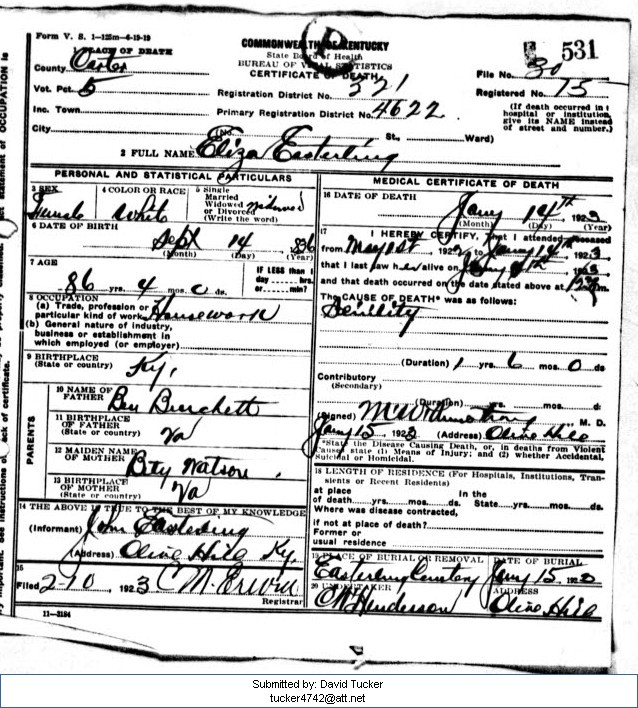 Form V. S. 1-125m-6-19-19
PLACE OF DEATH
COMMONWEALTH OF KENTUCKY
State Board of Health
BUREAU OF VITAL STATISTICS
CERTIFICATE OF DEATH
531
County Carter
File No. 30
Vot. Pct. 5
Registration District No. 221
Registered No. 15
Inc. Town
Primary Registration District No. 4622
(If death occurred in
hospital or institution,
give its NAME instead
of street and number.)
City
(No. St., Ward)
2 FULL NAME Eliza Easterling
PERSONAL AND STATISTICAL PARTICULARS
3 SEX
Female
4 COLOR OR RACE
White
5 Single
Married
Widowed
or Divorced
(Write the word)
Widowed
6 DATE OF BIRTH
Sept 14
(Month) (Day) (Year)
7 AGE
86 yrs. 4 mos. 0 ds.
IF LESS than 1
day hrs.
or min?
8 OCCUPATION
(a) Trade, profession or
particular kind of work Housework
(b) General nature of industry,
business or establishment in
which employed (or employer)
9 BIRTHPLACE
(State or country) Ky.
PARENTS
10 NAME OF
FATHER Ben Burchett
11 BIRTHPLACE
OF FATHER
(State or country) Va
12 MAIDEN NAME
OF MOTHER Bety Watson
13 BIRTHPLACE
OF MOTHER
(State or country) Va
14 THE ABOVE IS TRUE TO THE BEST OF MY KNOWLEDGE
(Informant) John Easterling
(Address) Olive Hill Ky
15
Filed 2-10, 1923
Registrar
11-3184
MEDICAL CERTIFICATE OF DEATH
16 DATE OF DEATH
Jany 14th 1923
(Month) (Day) (Year)
17 I HEREBY CERTIFY, that I attended deceased
from May 1st 192 to Jany 14th, 1923
that I last saw her alive on Jany 1923
and that death occurred on the date stated above at m.
The CAUSE OF DEATH* was as follows:
Senility
(Duration) 1 yrs. 6 mos. 0 ds
Contributory
(Secondary)
(Duration) yrs. mos. d:
(Signed) M. D.
Jany 15, 1923 (Address) Olive Hill
*State the Disease Causing Death, or, in deaths from Violent
Causes state (1) Means of Injury; and (2) whether Accidental,
Suicidal or Homicidal.
18 LENGTH OF RESIDENCE (For Hospitals, Institutions, Tran-
sients or Recent Residents)
at place
of death yrs. mos. ds.
In the
State yrs. mos. ds.
Where was disease contracted,
if not at place of death?
Former or
usual residence
19 PLACE OF BURIAL OR REMOVAL
Easterling Cemetery
DATE OF BURIAL
Jany 15, 1923
20 UNDERTAKER
Henderson
ADDRESS
Olive Hill
Submitted by: David Tucker
tucker4742@att.net